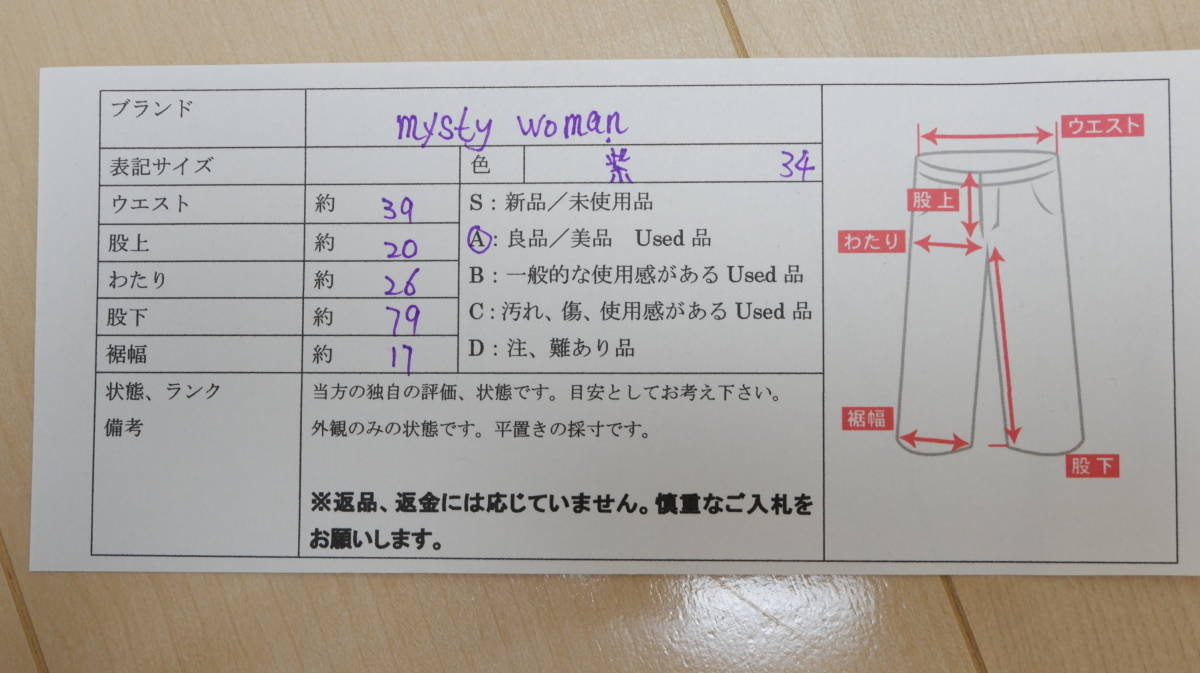 ブランド mysty woman
表記サイズ 色 紫 34
ウエスト 約 39
股上 約 20
わたり 約 26
股下 約 79
裾幅 約 17
S：新品／未使用品
A：良品／美品　Used 品
B：一般的な使用感がある Used 品
C：汚れ、傷、使用感がある Used 品
D：注、難あり品
状態、ランク
備考
当方の独自の評価、状態です。目安としてお考え下さい。
外観のみの状態です。平置きの採寸です。
※返品、返金には応じていません。慎重なご入札を
お願いします。
ウエスト
股上
わたり
裾幅
股下